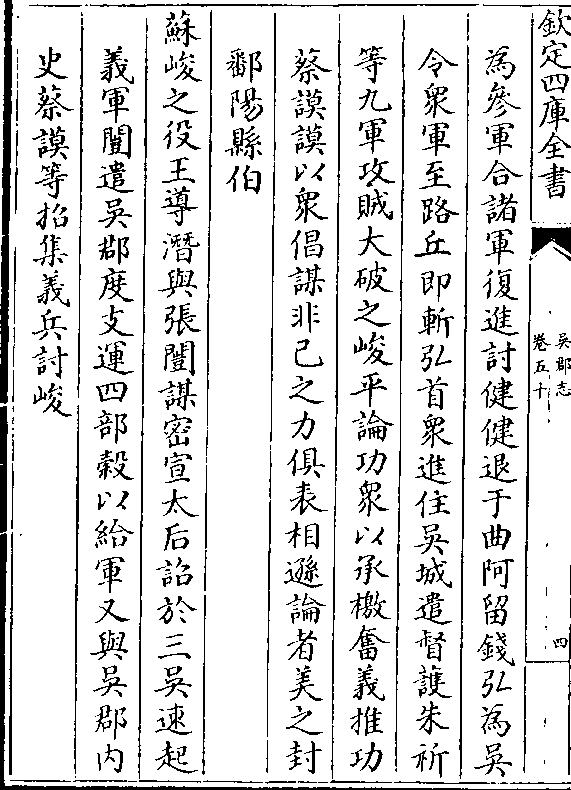 欽定四庫全書
吳郡志
卷五十
四
為參軍合諸軍復進討健健退于曲阿留錢弘為吳
令衆軍至路丘即斬弘首衆進住吳城遣督護朱祈
等九軍攻賊大破之峻平論功衆以承檄奮義推功
蔡謨謨以衆倡謀非己之力俱表相遜論者美之封
鄱陽縣伯
蘇峻之役王導潛與張闓謀密宣太后詔於三吳速起
義軍闓遣吳郡度支運四部穀以給軍又與吳郡内
史蔡謨等招集義兵討峻